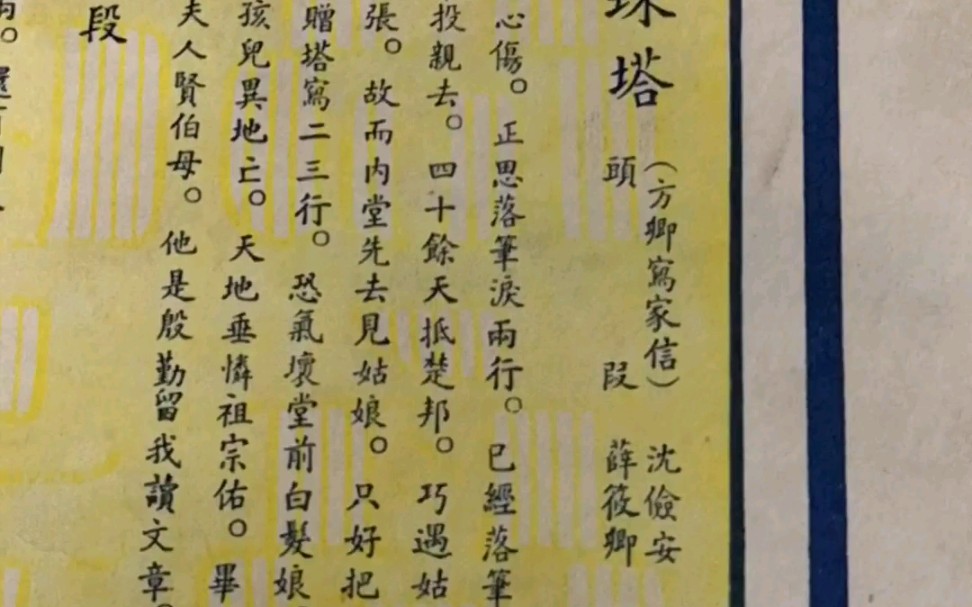 珠塔
（方卿寫家信）
頭段
沈儉安
薛筱卿
心傷。正思落筆淚兩行。已經落筆
投親去。四十餘天抵楚邦。巧遇姑
張。故而內堂先去見姑娘。只好把
贈塔寫二三行。恐氣壞堂前白髮娘
孩兒異地亡。天地垂憐祖宗佑。畢
夫人賢伯母。他是殷勤留我讀文章。
段